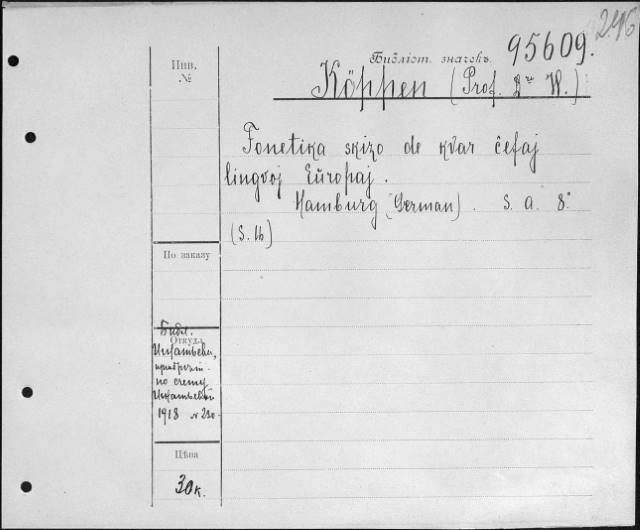 246
95609.
Библіот. значекъ.
Köppen (Prof. Dr W.)
Инв.
№
Fonetika skizo de kvar ĉefaj
lingvoj Eŭropaj.
Hamburg (German). S. a. 8°
(S. 16)
По заказу
Библ.
Откуда
Игнатьева,
приобрет.
по счету
Игнатьевой
1918 № 230
Цѣна
30 к.